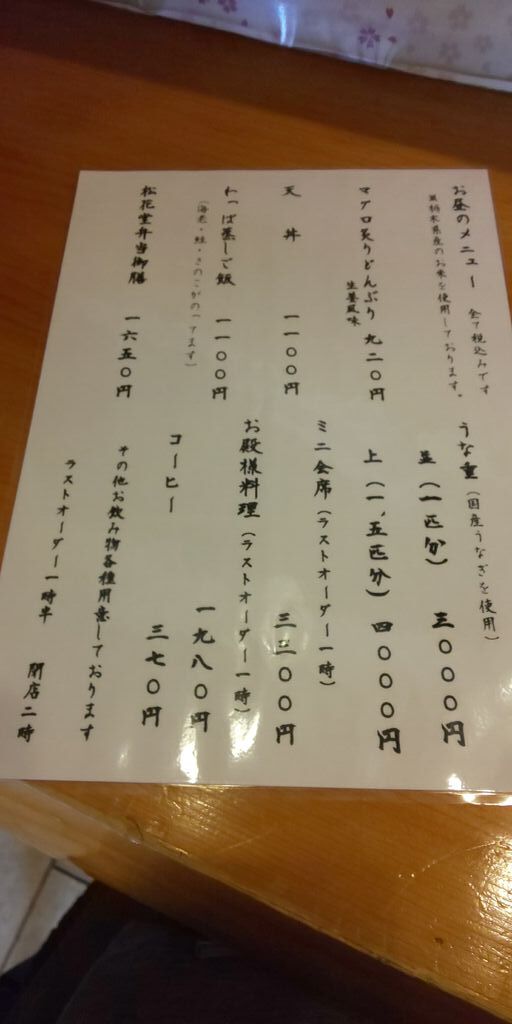 お昼のメニュー 全て税込みです
栃木県産のお米を使用しております。
マグロ炙りどんぶり 九二〇円
生姜風味
天丼 一一〇〇円
わっぱ蒸しご飯 一一〇〇円
(海老・鮭・きのこがのってます)
松花堂弁当御膳 一六五〇円
うな重(国産うなぎを使用)
並(一匹分) 三〇〇〇円
上(一、五匹分) 四〇〇〇円
ミニ会席(ラストオーダー一時)
三三〇〇円
お殿様料理(ラストオーダー一時)
一九八〇円
コーヒー 三七〇円
その他お飲み物各種用意しております
ラストオーダー一時半 閉店二時